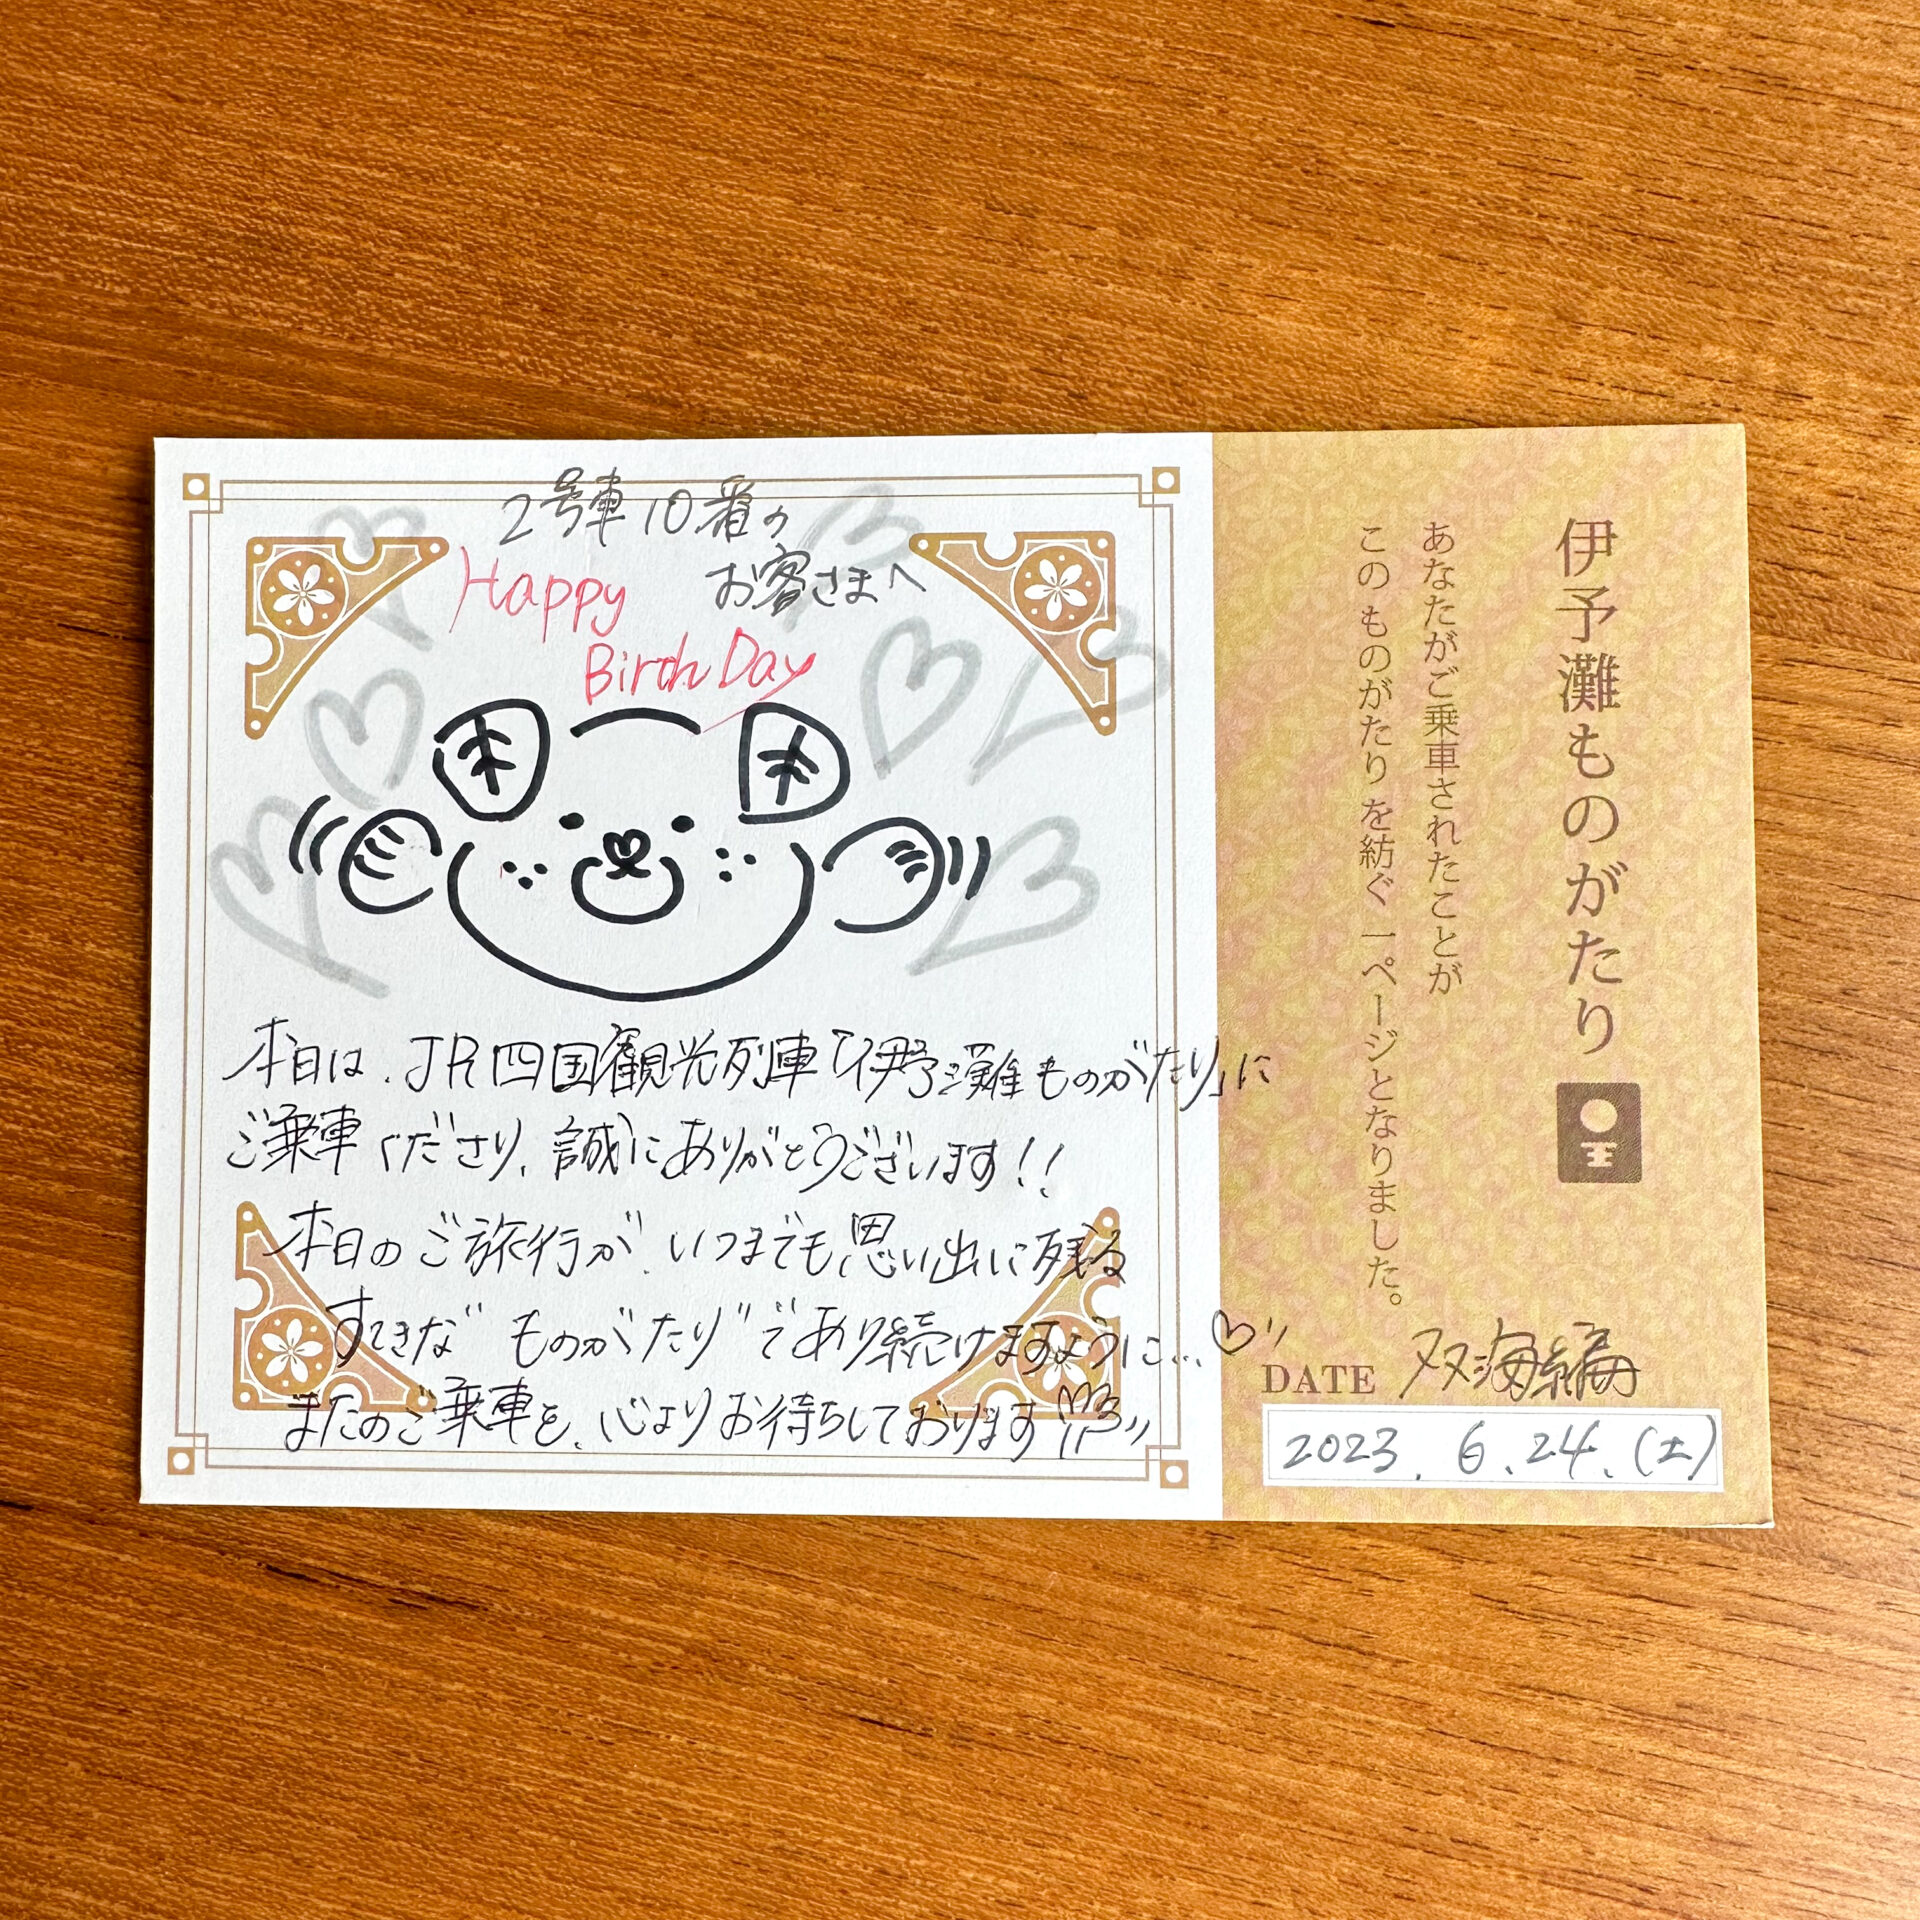 2号車10番の
お客さまへ
Happy
Birth Day
本日は、JR四国観光列車「伊予灘ものがたり」に
ご乗車くださり、誠にありがとうございます!!
本日のご旅行が、いつまでも思い出に残る
すてきな"ものがたり"であり続けますように…♡
またのご乗車を、心よりお待ちしております
伊予灘ものがたり
あなたがご乗車されたことが
この ものがたり を紡ぐ 一ページとなりました。
DATE 双海編
2023.6.24.(土)